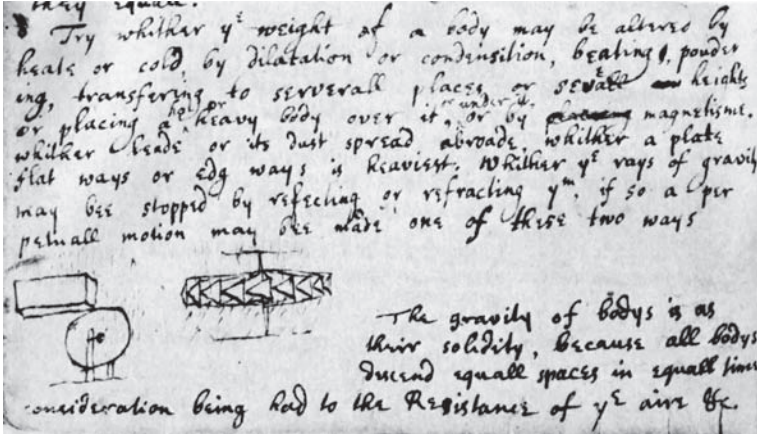 they equall.
Try whither yᵉ weight of a body may be altered by
heate or cold, by dilatation or condensition, beating, pouder
ing, transfering to serverall places or severall heights
or placing a hot or heavy body over it, or under it, or by magnetisme.
whither leade or its dust spread abroade, whither a plate
flat ways or edg ways is heaviest. Whither yᵉ rays of gravity
may bee stopped by reflecting or refracting yᵐ, if so a per
petuall motion may bee made one of these two ways
The gravity of bodys is as
their solidity, because all bodys
descend equall spaces in equall times
consideration being had to the Resistance of yᵉ aire &c.